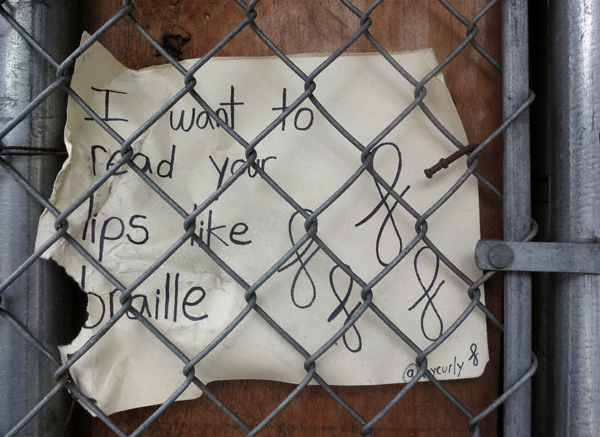 I want to
read your
lips like
braille